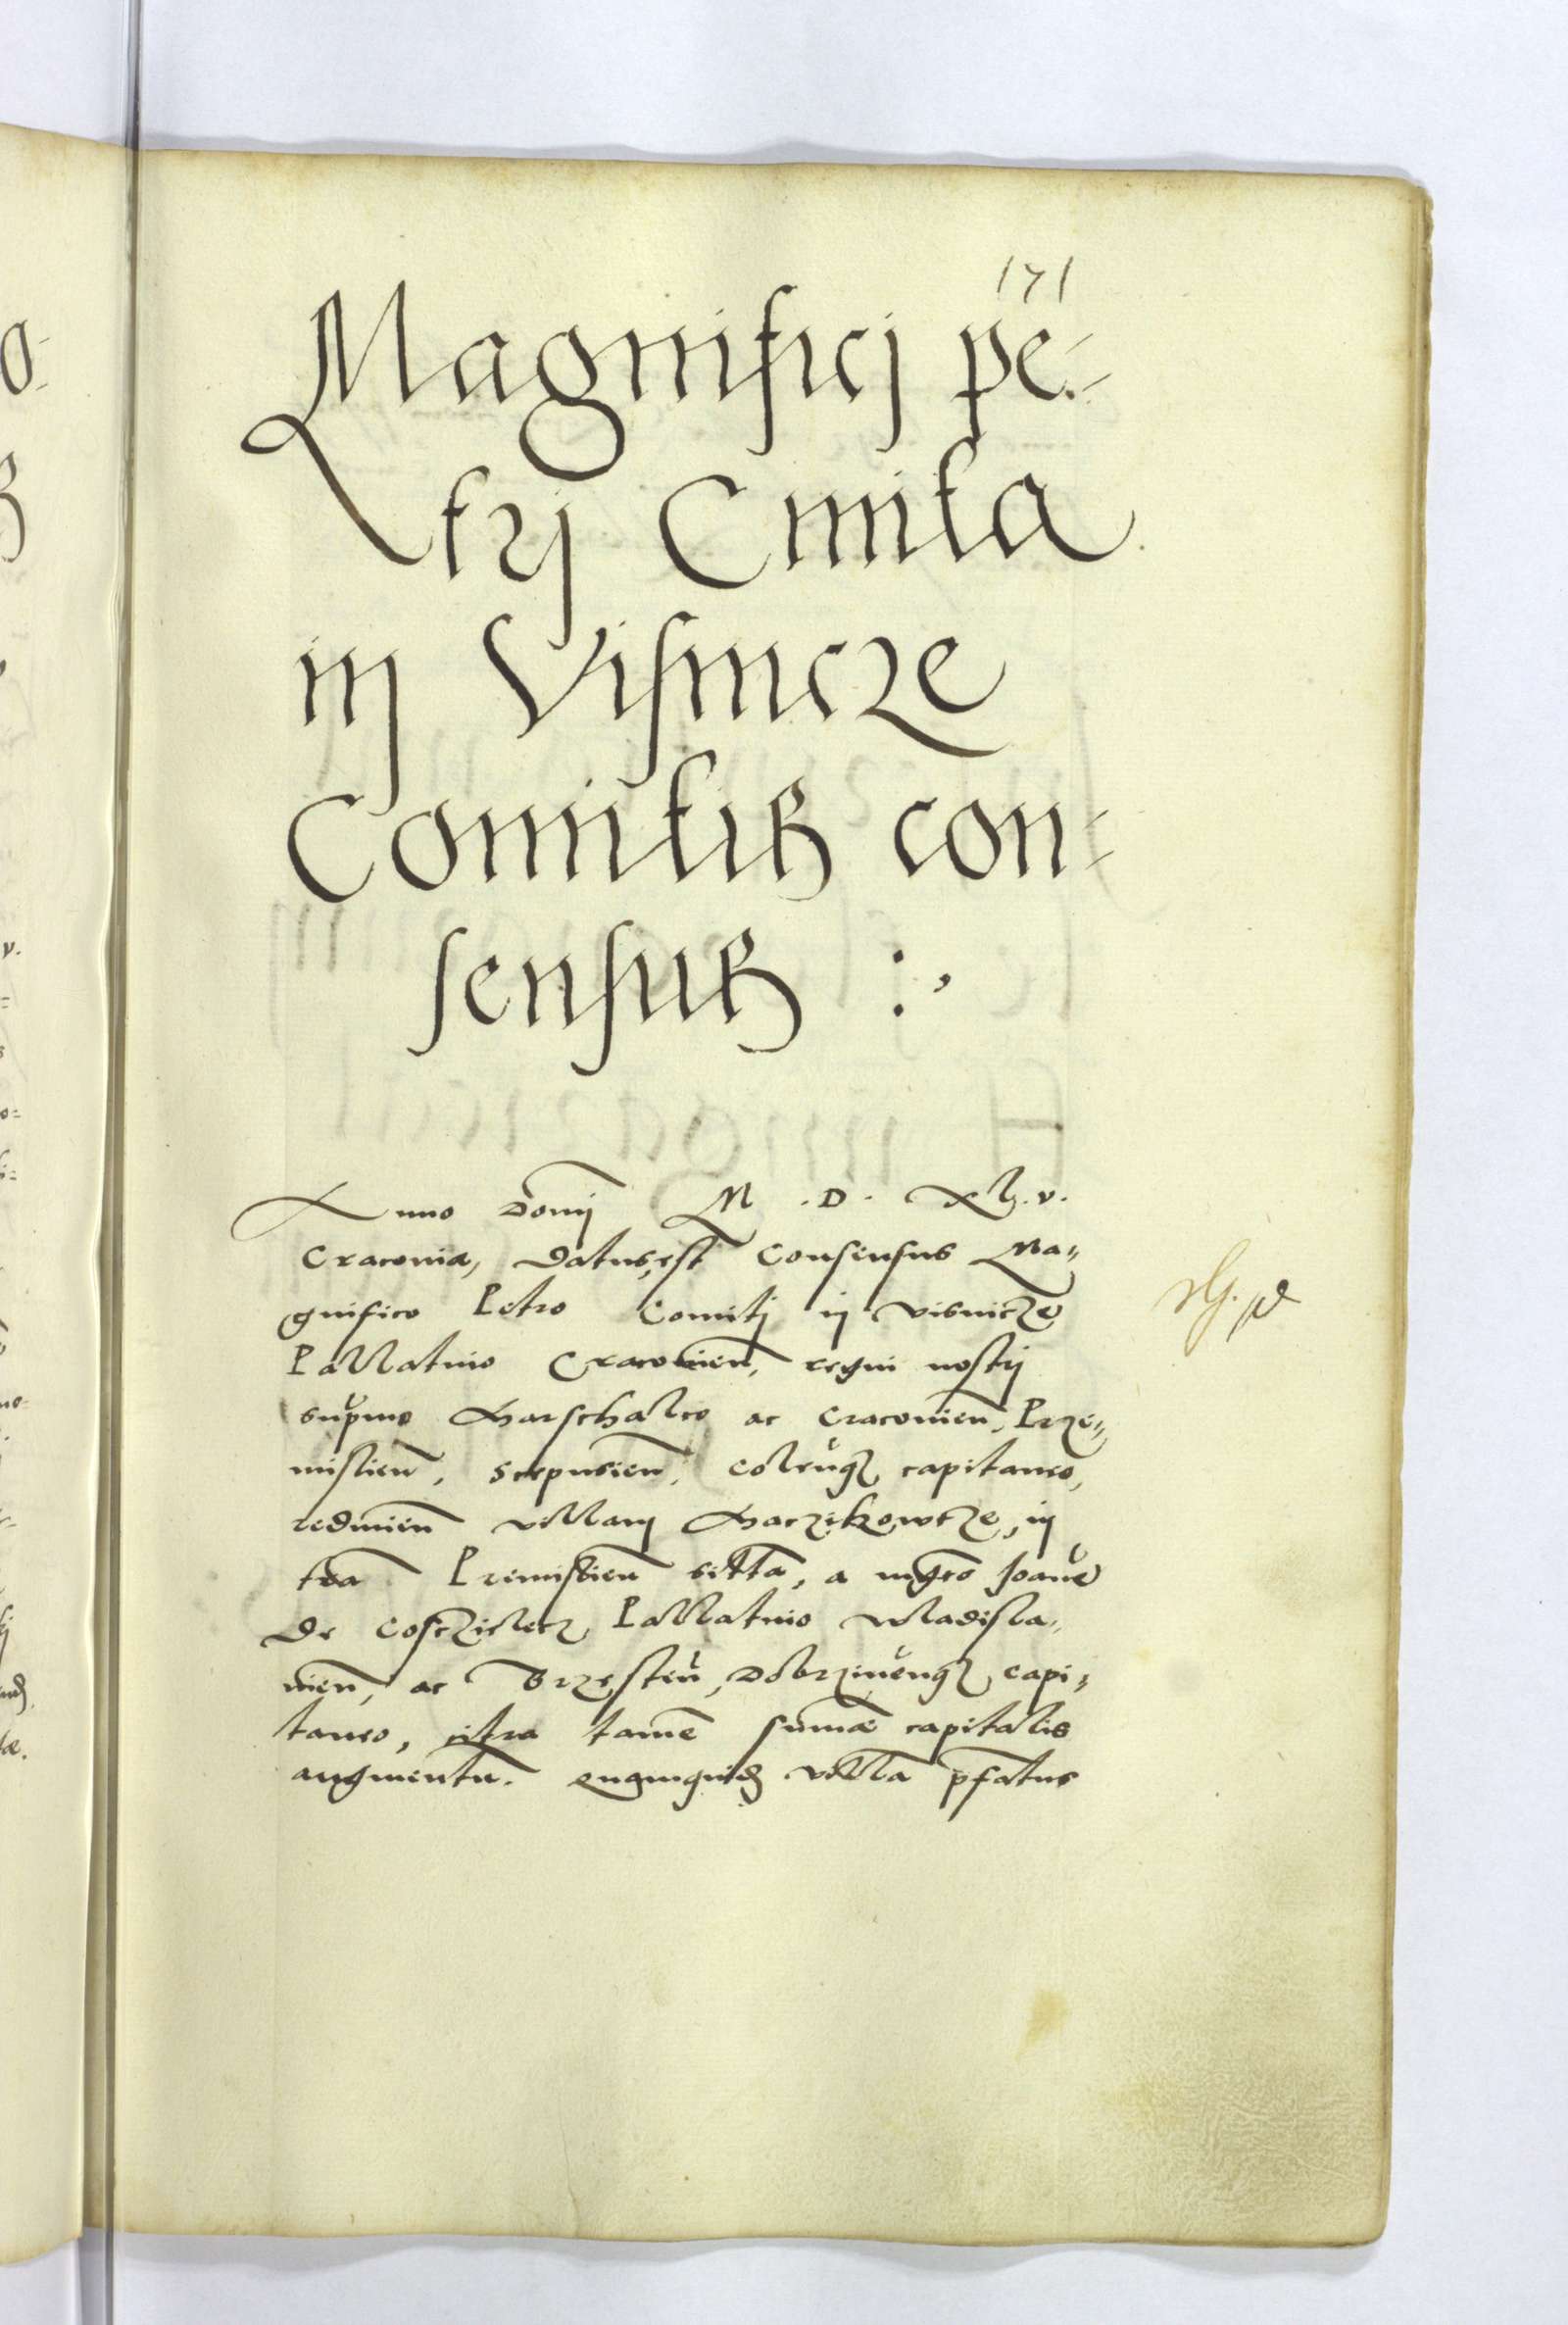 171
Magnificj pe-
trj Cmita
in Visnicze
Comitis con-
sensus :,
Anno Domj M . D . XL . v .
Cracoviæ, datus est Consensus Ma-
gnifico Petro Comiti in Visnicze
Pallatino Cracovien, regni nostrj
supmo Marschalco ac Cracovien, Prze-
mislien, Scepusien, Colensq capitaneo,
redimen villam Maczikowcze, in
tra Premislien sitta, a mgco Joane
de Cosczielecz Pallatino Wladisla-
vien, ac Brzesten, Dobrzinenq capi-
taneo, citra tame sumæ capitalis
augmentu. quamquid villa pfatus